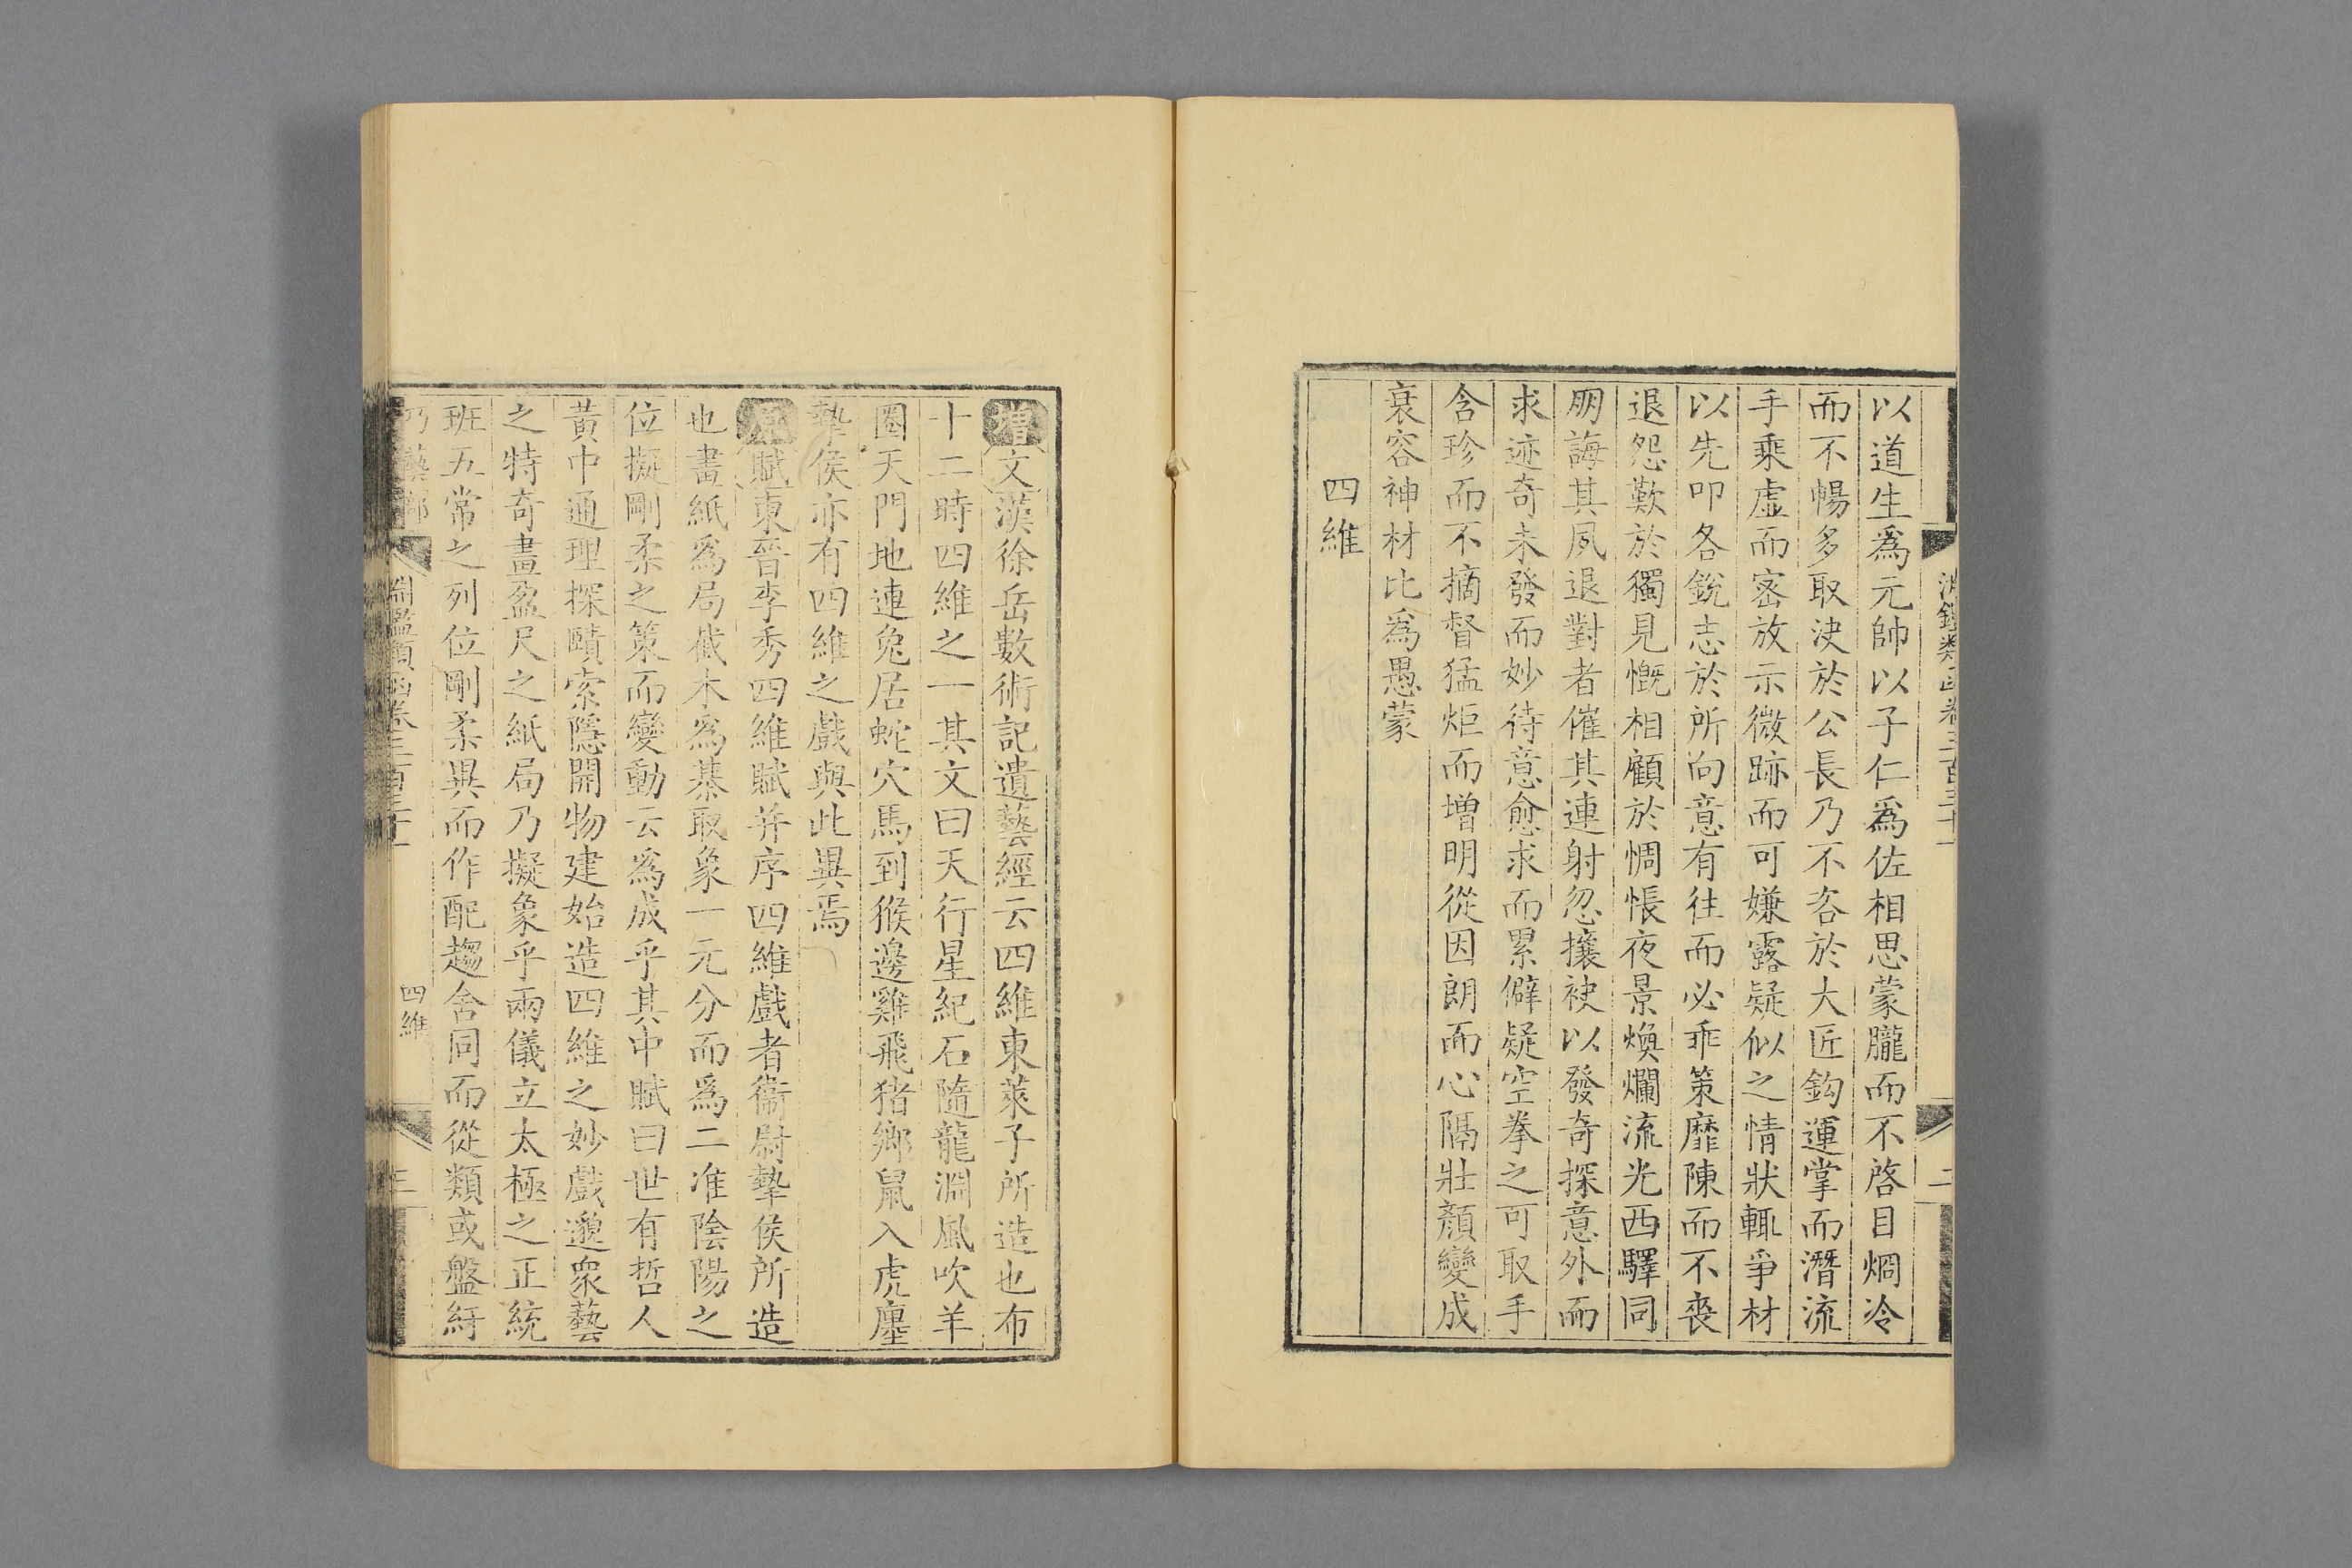 以道生爲元帥以子仁爲佐相思蒙朧而不啓目烱冷
而不暢多取決於公長乃不吝於大匠鈎運掌而潛流
手乘虛而密放示微跡而可嫌露疑似之情狀輒爭材
以先叩各銳志於所向意有往而必乖策靡陳而不喪
退怨歎於獨見慨相顧於惆悵夜景煥爛流光西驛同
朋誨其夙退對者催其連射忽攘袂以發奇探意外而
求迹奇未發而妙待意愈求而累僻疑空拳之可取手
含珍而不摘督猛炬而增明從因朗而心隔壯顏變成
衰容神材比爲愚蒙
四維
增文漢徐岳數術記遺藝經云四維東萊子所造也布
十二時四維之一其文曰天行星紀石隨龍淵風吹羊
圈天門地連兔居蛇穴馬到猴邊雞飛猪鄉鼠入虎廛
摯侯亦有四維之戲與此異焉
原賦東晉李秀四維賦并序四維戲者衞尉摯侯所造
也畫紙爲局截木爲棊取象一元分而爲二准陰陽之
位擬剛柔之策而變動云爲成乎其中賦曰世有哲人
黃中通理探賾索隱開物建始造四維之妙戲邈衆藝
之特奇畫盈尺之紙局乃擬象乎兩儀立太極之正統
班五常之列位剛柔異而作配趨舍同而從類或盤紆
巧藝部 淵鑑類函卷三百三十一 四維 三